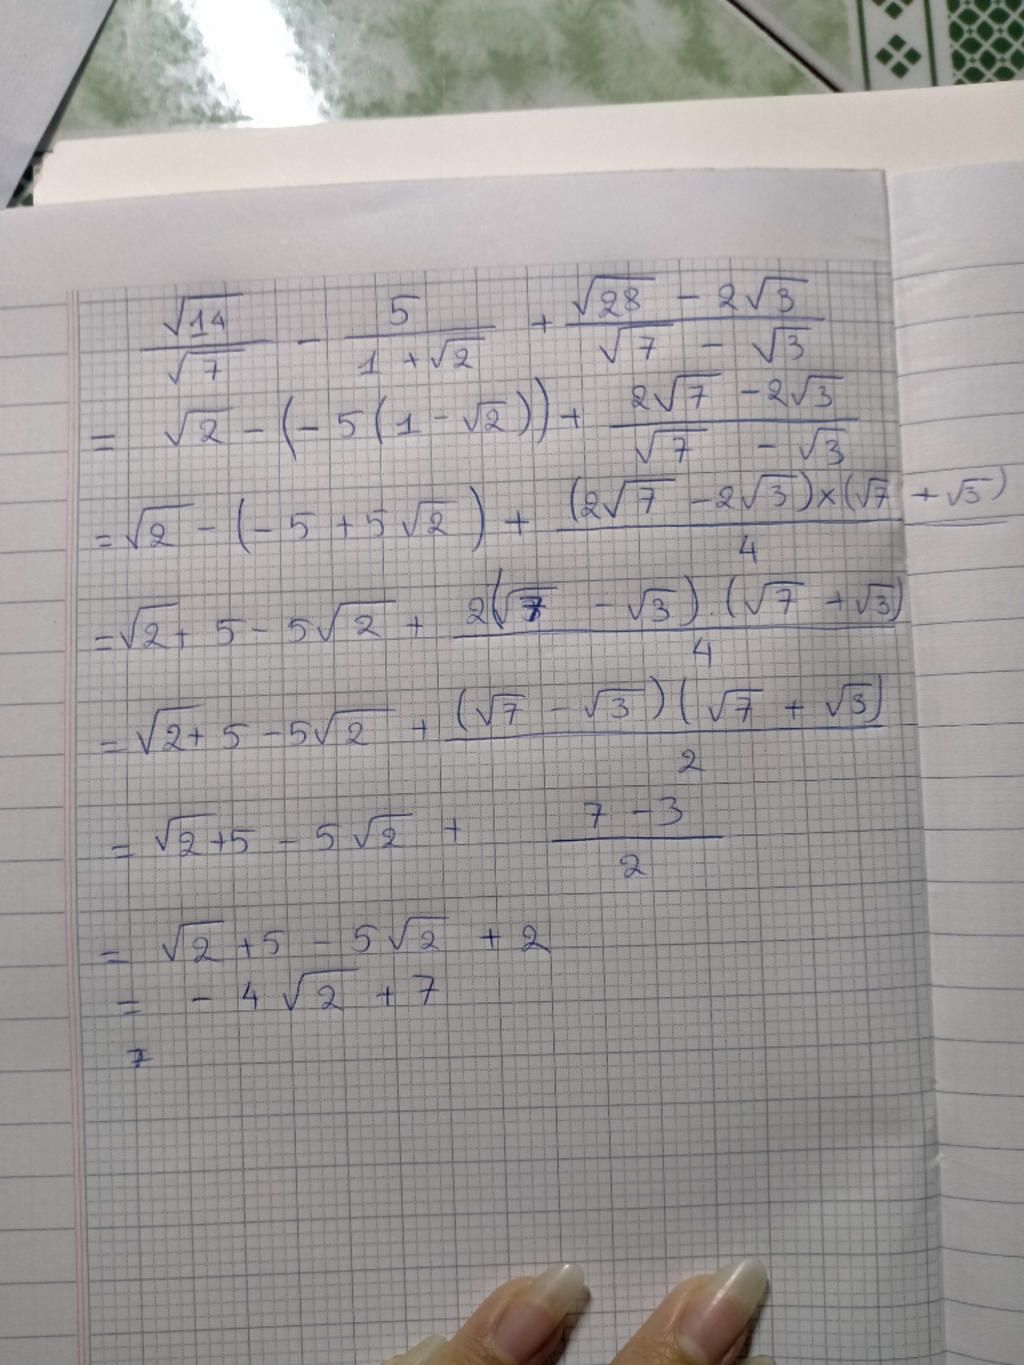 √14/√7 - 5/(1 + √2) + (√28 - 2√3)/(√7 - √3)
= √2 - (- 5(1 - √2)) + (2√7 - 2√3)/(√7 - √3)
= √2 - (- 5 + 5√2) + (2√7 - 2√3)×(√7 + √3)/4
= √2 + 5 - 5√2 + 2(√7 - √3).(√7 + √3)/4
= √2 + 5 - 5√2 + (√7 - √3)(√7 + √3)/2
= √2 + 5 - 5√2 + (7 - 3)/2
= √2 + 5 - 5√2 + 2
= - 4√2 + 7
7